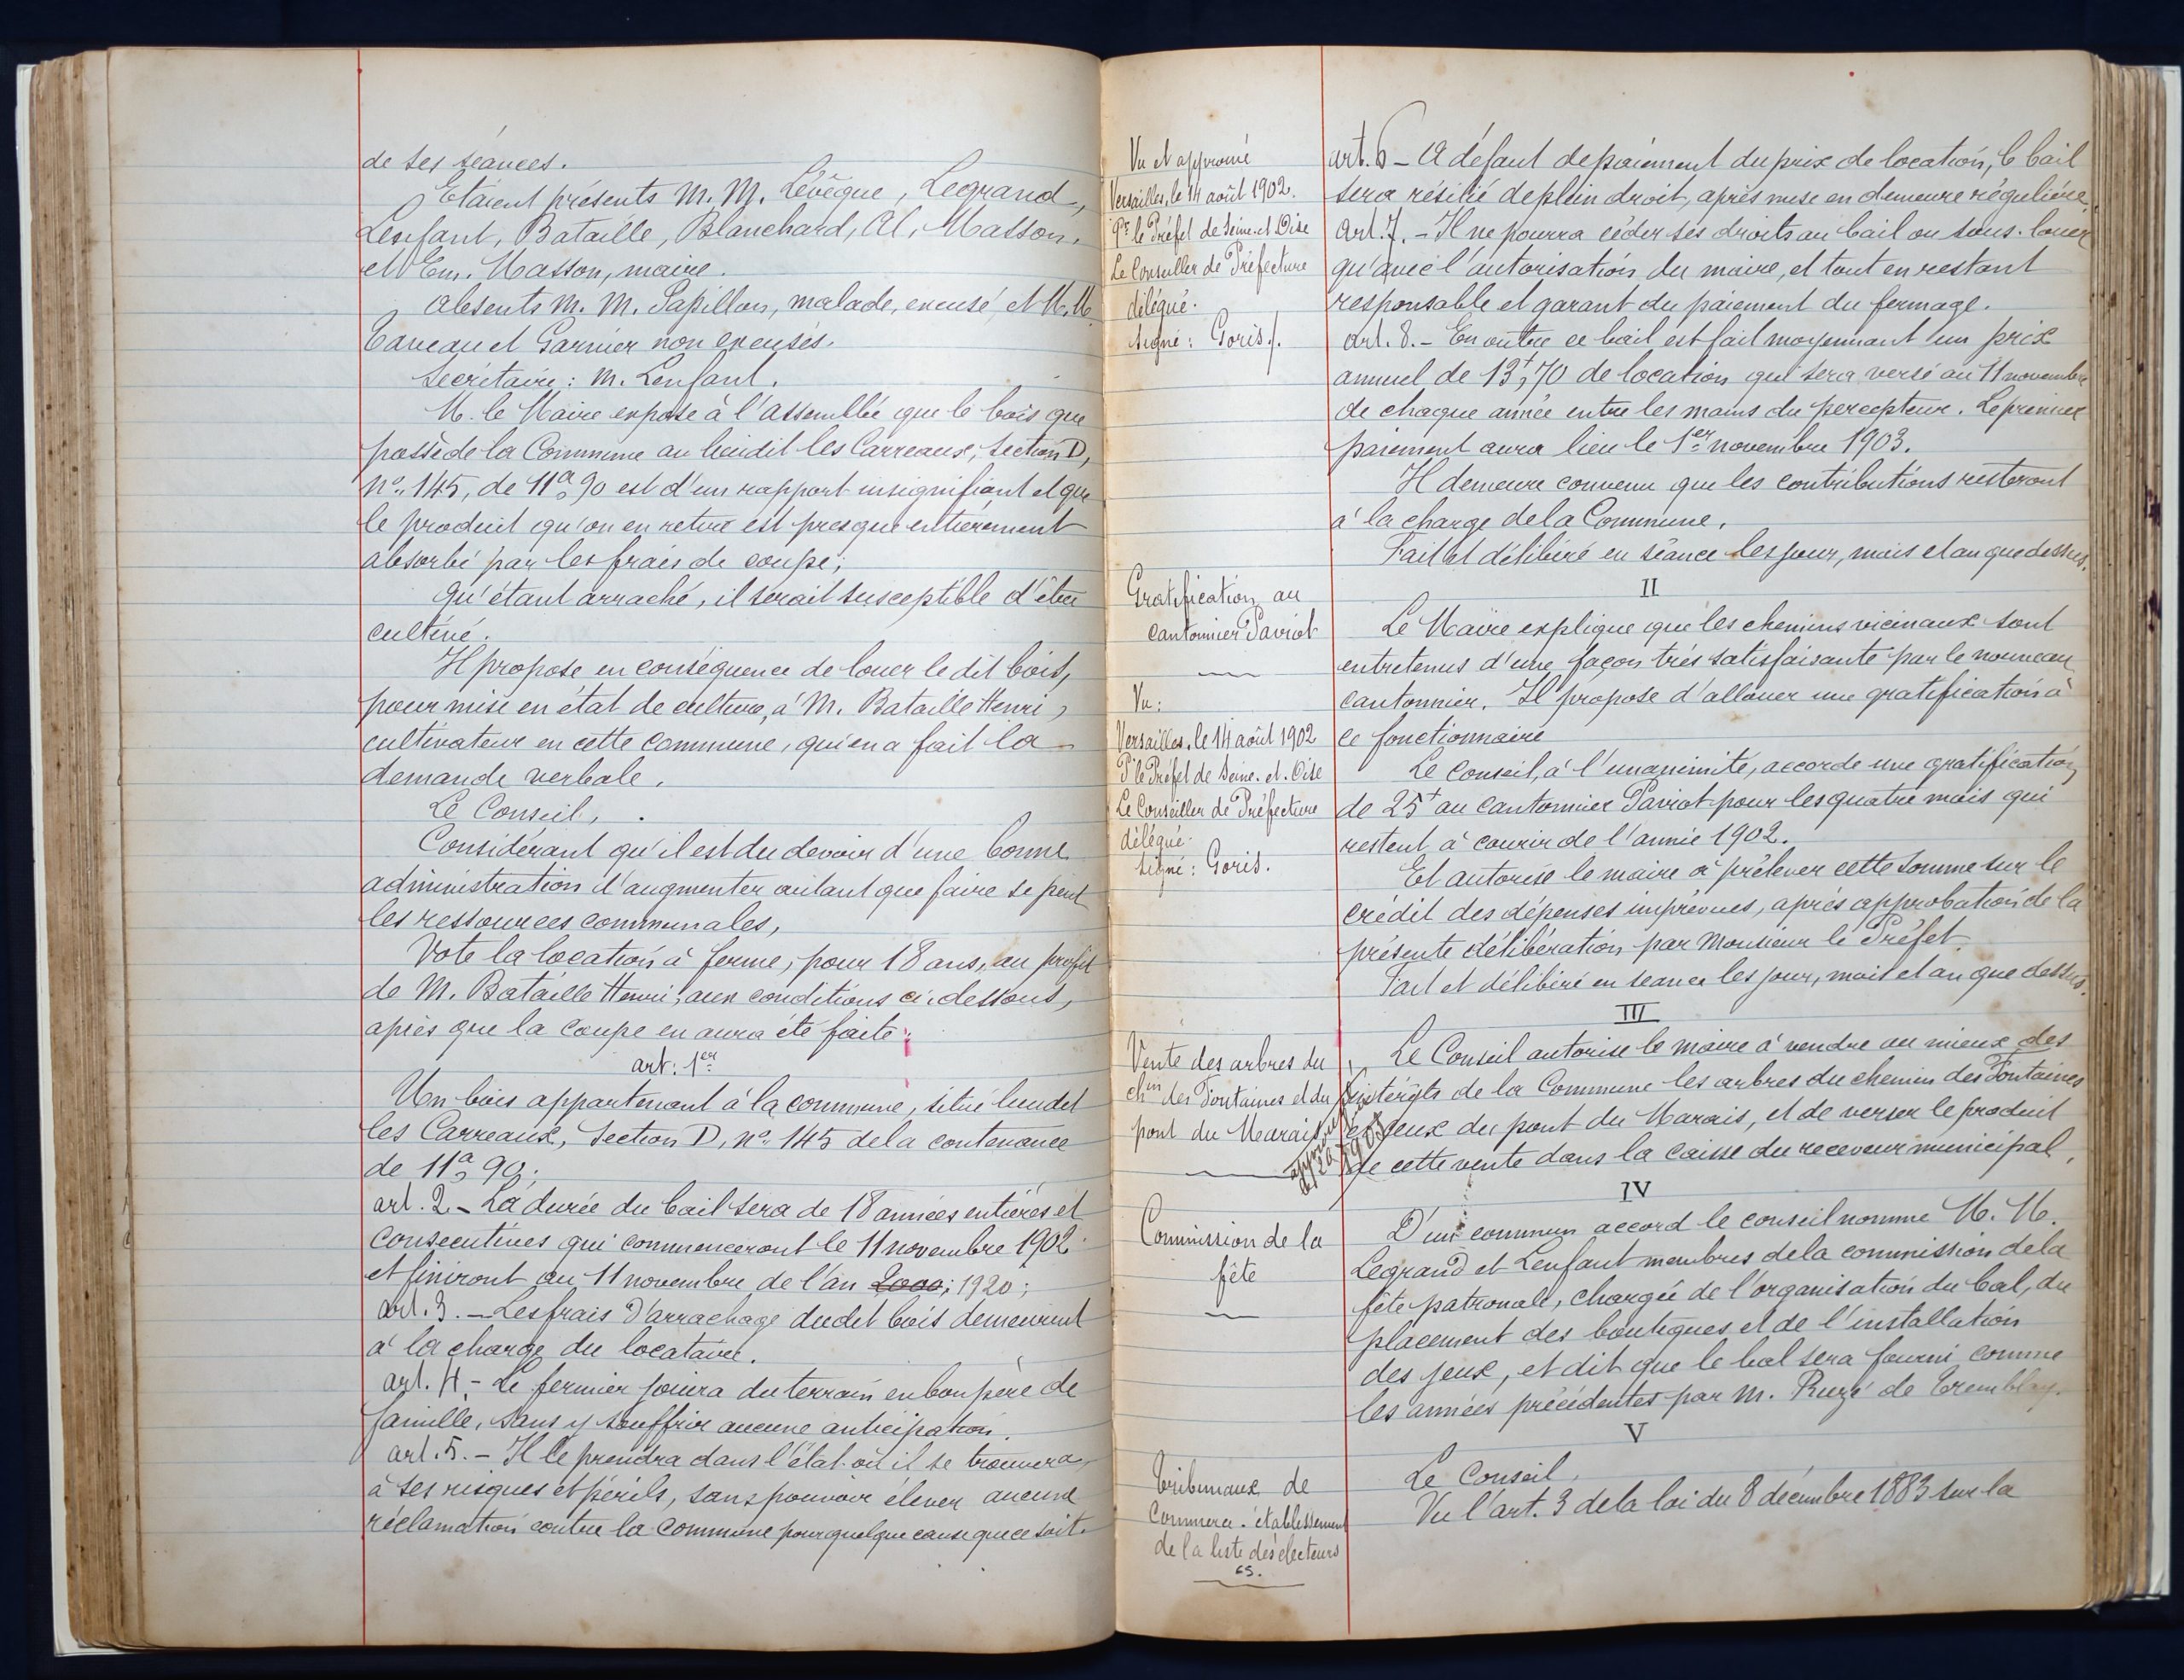 de ses séances.
Etaient présents M. M. Lévêque, Legrand,
Lenfant, Bataille, Blanchard, Al. Masson,
et Em. Masson, maire.
Absents M. M. Papillon, malade, excusé, et M. M.
Caveau et Garnier non excusés.
Secrétaire : M. Lenfant.
M. le Maire expose à l'assemblée que le bois que
possède la Commune au lieudit les Carreaux, section D,
n° 145, de 11a,90 est d'un rapport insignifiant et que
le produit qu'on en retire est presque entièrement
absorbé par les frais de coupe ;
Qu'étant arraché, il serait susceptible d'être
cultivé.
Il propose en conséquence de louer le dit bois,
pour mise en état de culture, à M. Bataille Henri,
cultivateur en cette commune, qui en a fait la
demande verbale.
Le Conseil,
Considérant qu'il est du devoir d'une bonne
administration d'augmenter autant que faire se peut
les ressources communales,
Vote la location à ferme, pour 18 ans, au profit
de M. Bataille Henri, aux conditions ci-dessous,
après que la coupe en aura été faite :
art. 1er
Un bois appartenant à la commune, situé lieudit
les Carreaux, Section D, n° 145 de la contenance
de 11a,90 ;
art. 2 - La durée du bail sera de 18 années entières et
consecutives qui commenceront le 11 novembre 1902
et finiront au 11 novembre de l'an 2000 ; 1920 ;
art. 3. - Les frais d'arrachage dudit bois demeurent
à la charge du locataire.
art. 4. - Le fermier jouira du terrain en bon père de
famille, sans y souffrir aucune anticipation.
art. 5. - Il le prendra dans l'état où il se trouvera,
à ses risques et périls, sans pouvoir élever aucune
réclamation contre la commune pour quelque cause que ce soit.
Vu et approuvé
Versailles, le 14 août 1902.
Pr le Préfet de Seine-et-Oise
Le Conseiller de Préfecture
délégué.
signé : Goris /.
art. 6 - A défaut de paiement du prix de location, le bail
sera résilié de plein droit, après mise en demeure régulière.
art. 7. - Il ne pourra céder ses droits au bail ou sous-louer
qu'avec l'autorisation du maire, et tout en restant
responsable et garant du paiement du fermage.
art. 8. - En outre ce bail est fait moyennant un prix
annuel de 13f,70 de location qui sera versé au 11 novembre
de chaque année entre les mains du percepteur. Le premier
paiement aura lieu le 1er novembre 1903.
Il demeure convenu que les contributions resteront
à la charge de la Commune.
Fait et délibéré en séance les jour, mois et an que dessus.
II
Gratification au
cantonnier Paviot
Vu :
Versailles, le 14 août 1902
Pr le Préfet de Seine-et-Oise
Le Conseiller de Préfecture
délégué.
signé : Goris.
Le Maire explique que les chemins vicinaux sont
entretenus d'une façon très satisfaisante par le nouveau
cantonnier. Il propose d'allouer une gratification à
ce fonctionnaire
Le Conseil, à l'unanimité, accorde une gratification
de 25f au cantonnier Paviot pour les quatre mois qui
restent à courir de l'année 1902.
Et autorise le maire à prélever cette somme sur le
crédit des dépenses imprévues, après approbation de la
présente délibération par Monsieur le Préfet.
Fait et délibéré en séance les jour, mois et an que dessus.
III
Vente des arbres du
chin des Fontaines et du
pont du Marais
Le Conseil autorise le maire à vendre au mieux des
intérêts de la Commune les arbres du chemin des Fontaines
et ceux du pont du Marais, et de verser le produit
de cette vente dans la caisse du receveur municipal.
IV
Commission de la
fête
D'un commun accord le conseil nomme M. M.
Legrand et Lenfant membres de la commission de la
fête patronale, chargée de l'organisation du bal, du
placement des boutiques et de l'installation
des jeux, et dit que le bal sera fourni comme
les années précédentes par M. Ruzé de Tremblay.
V
Tribunaux de
Commerce. établissement
de la liste des électeurs
Le Conseil,
Vu l'art. 3 de la loi du 8 décembre 1883 sur la